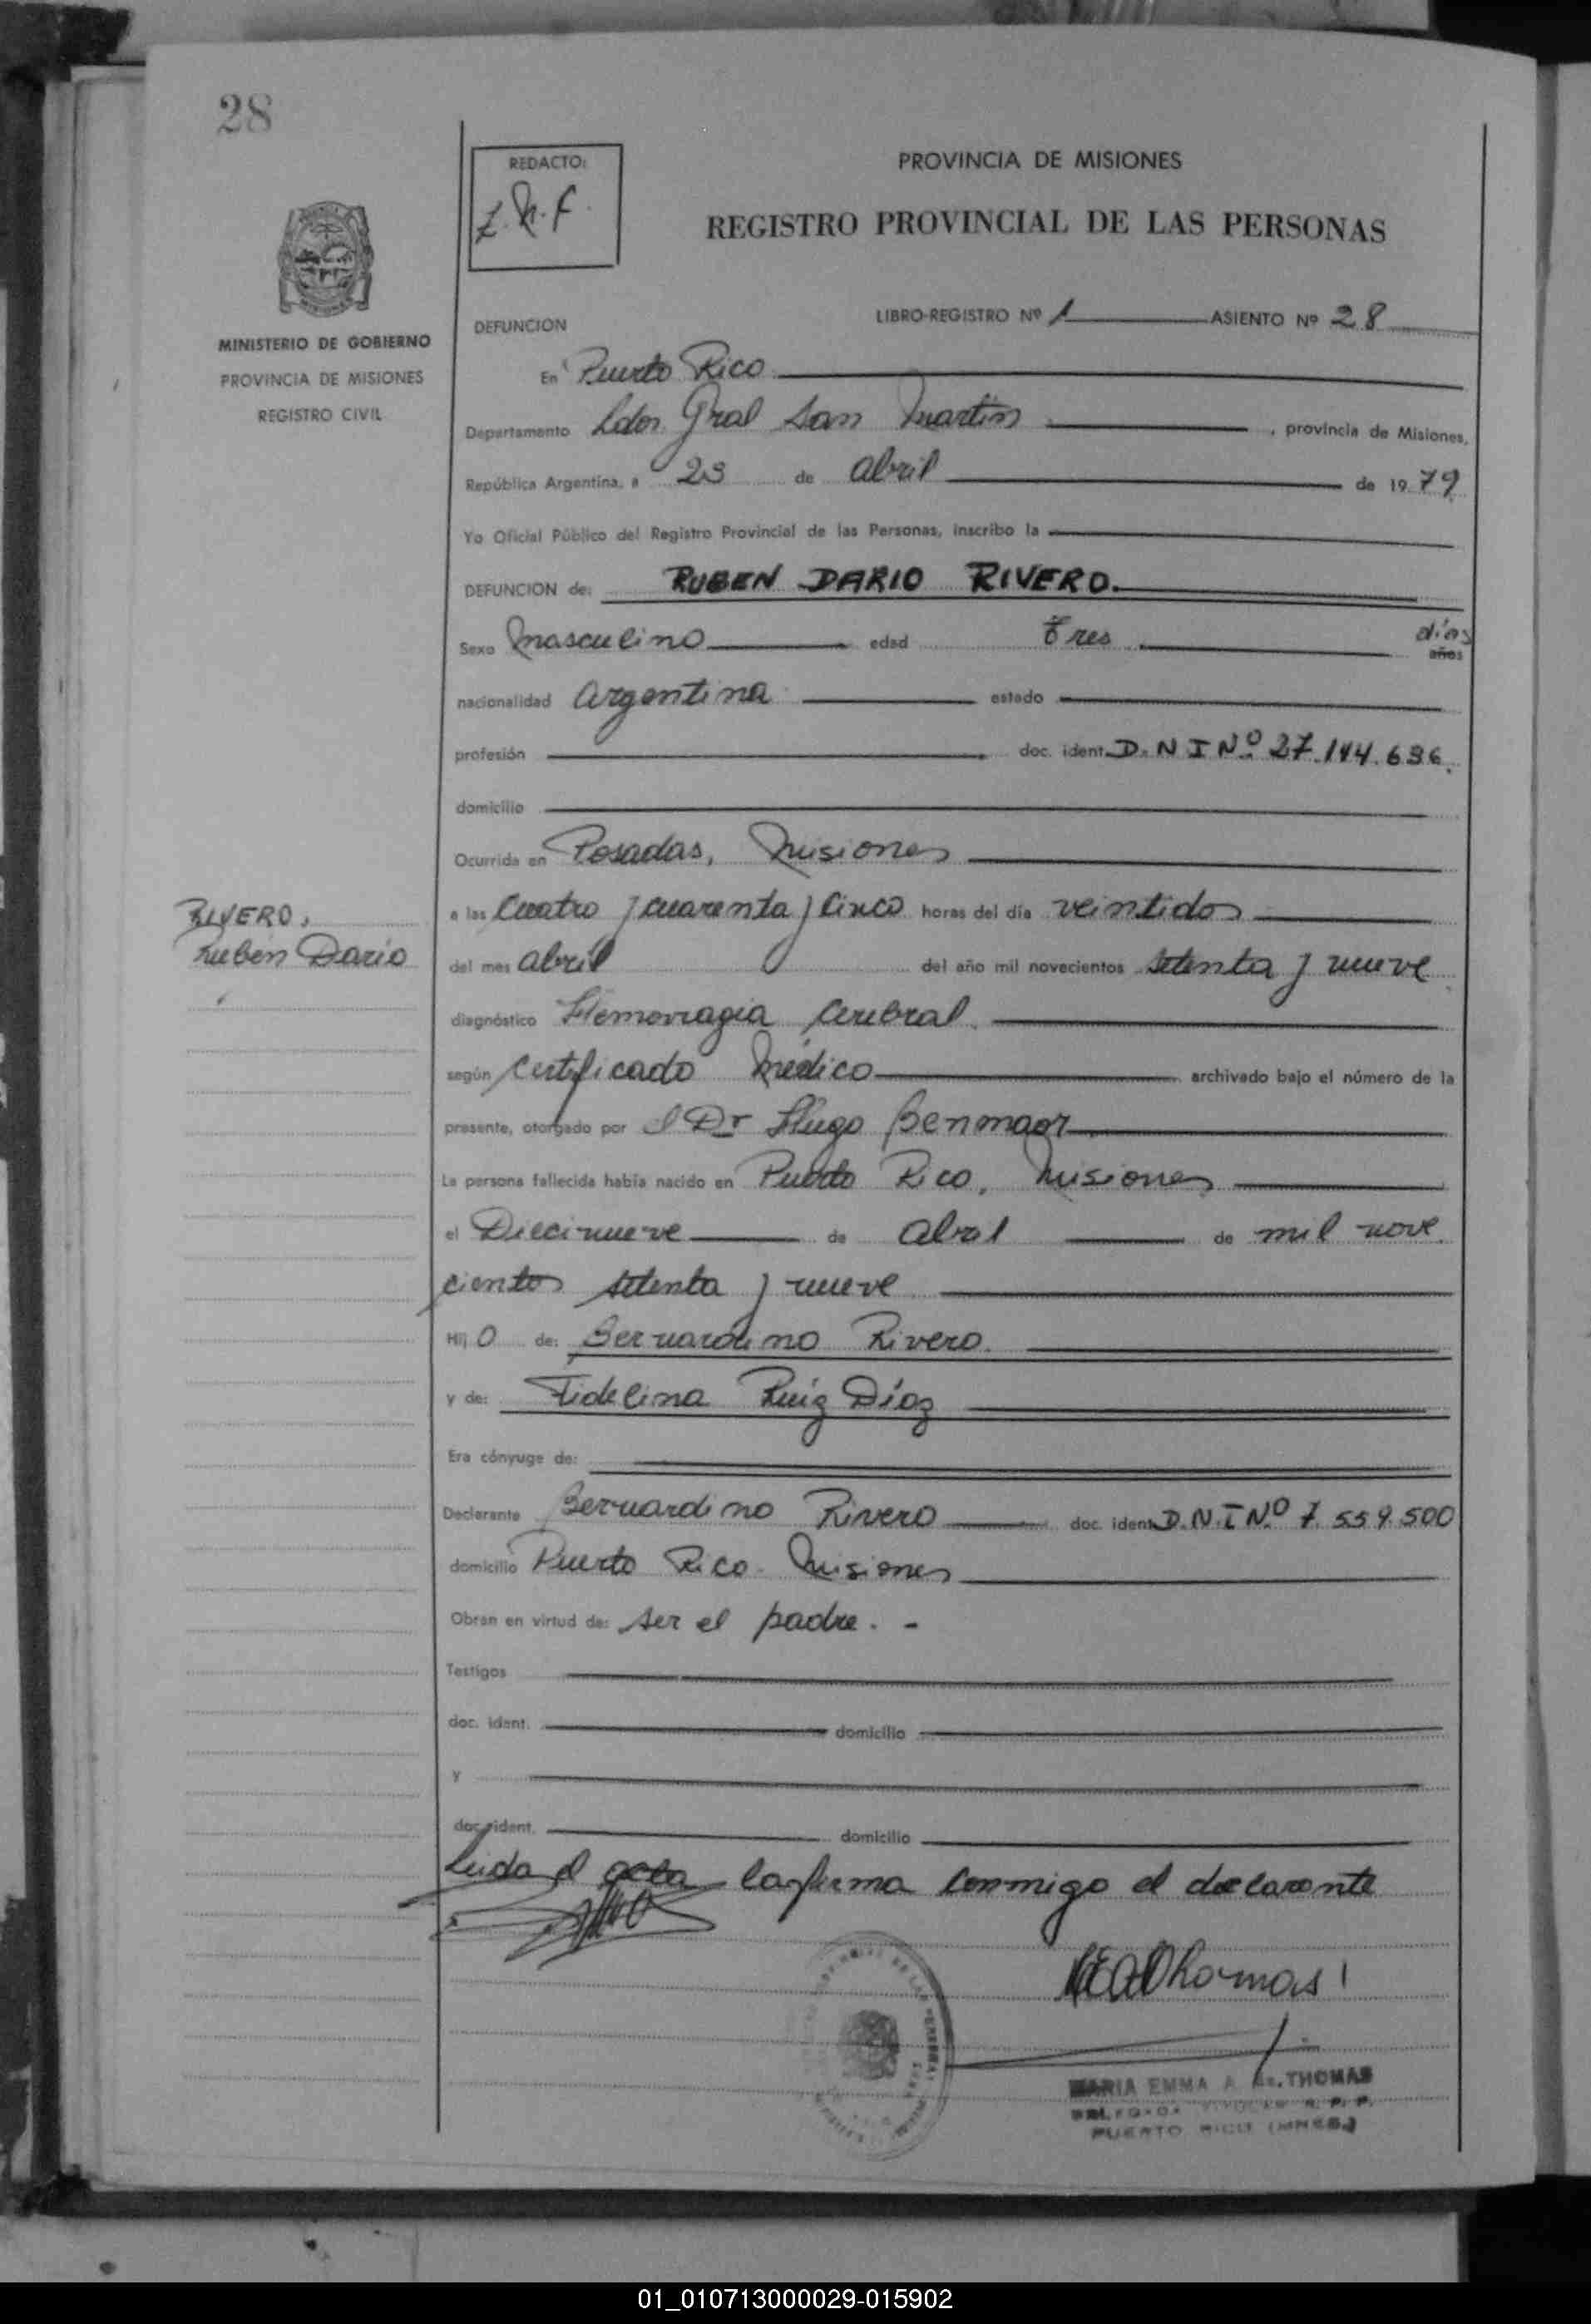 28
REDACTO:
PROVINCIA DE MISIONES
REGISTRO PROVINCIAL DE LAS PERSONAS
MINISTERIO DE GOBIERNO
PROVINCIA DE MISIONES
REGISTRO CIVIL
DEFUNCION LIBRO-REGISTRO Nº 1 ASIENTO Nº 28
En Puerto Rico
Departamento Ldor. Gral San Martin , provincia de Misiones,
República Argentina, a 23 de abril de 19 79
Yo Oficial Público del Registro Provincial de las Personas, inscribo la
DEFUNCION de: RUBEN DARIO RIVERO.
Sexo Masculino edad tres días años
nacionalidad Argentina estado
profesión doc. ident. D.N I Nº 27.144.636.
domicilio
Ocurrida en Posadas, Misiones
RIVERO,
Ruben Dario
a las Cuatro y cuarenta y Cinco horas del día veintidos
del mes abril del año mil novecientos setenta y nueve
diagnóstico Hemorragia Cerebral.
según Certificado Médico archivado bajo el número de la
presente, otorgado por el Dr Hugo Benmaor
La persona fallecida había nacido en Puerto Rico, Misiones
el Diecinueve de abril de mil nove
cientos setenta y nueve
Hij o de: Bernardino Rivero.
y de: Fidelina Ruiz Díaz
Era cónyuge de:
Declarante Bernardino Rivero doc. ident. D.N.I Nº 7.559.500
domicilio Puerto Rico. Misiones
Obran en virtud de: ser el padre. -
Testigos
doc. ident. domicilio
y
doc. ident. domicilio
Leida el acta la firma conmigo el declarante
MARIA EMMA A de. THOMAS
PUERTO RICO (MNES.)
01_010713000029-015902